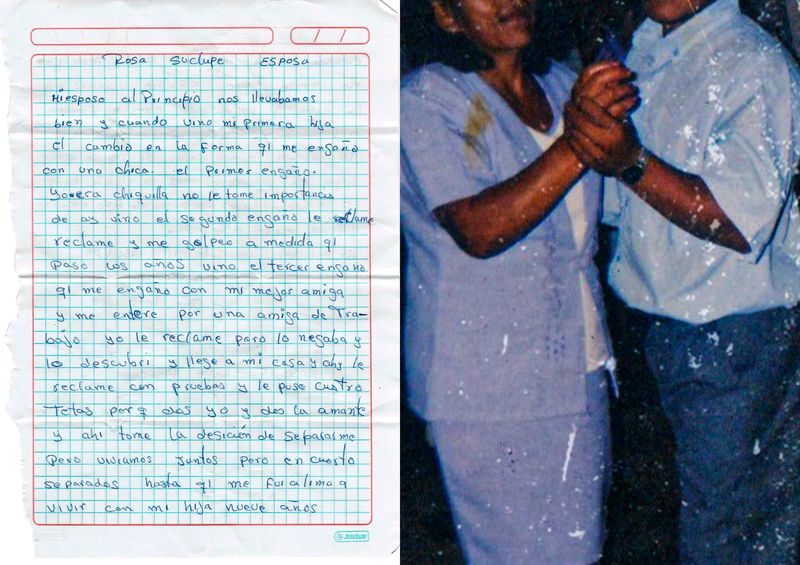 Rosa Suclupe ESPOSA
Mi esposo al Principio nos llevabamos
bien y cuando vino mi primera hija
El cambio en la forma qi me engaño
con una chica. el primer engaño.
Yo era chiquilla no le tome importancia
de ay vino el segundo engaño le reclame
reclame y me golpeo a medida qi
Paso los años vino el tercer engaño
qi me engaño con mi mejor amiga
y me entere por una amiga de Tra-
bajo yo le reclame pero lo negaba y
lo descubri y llege a mi casa y ahy le
reclame con pruebas y le puse cuatro
Tetas porq dos yo y dos la amante
y ahi tome la desición de separarme
Pero viviamos juntos pero en cuarto
separados hasta qi me fui a lima a
vivir con mi hija nueve años
Justus